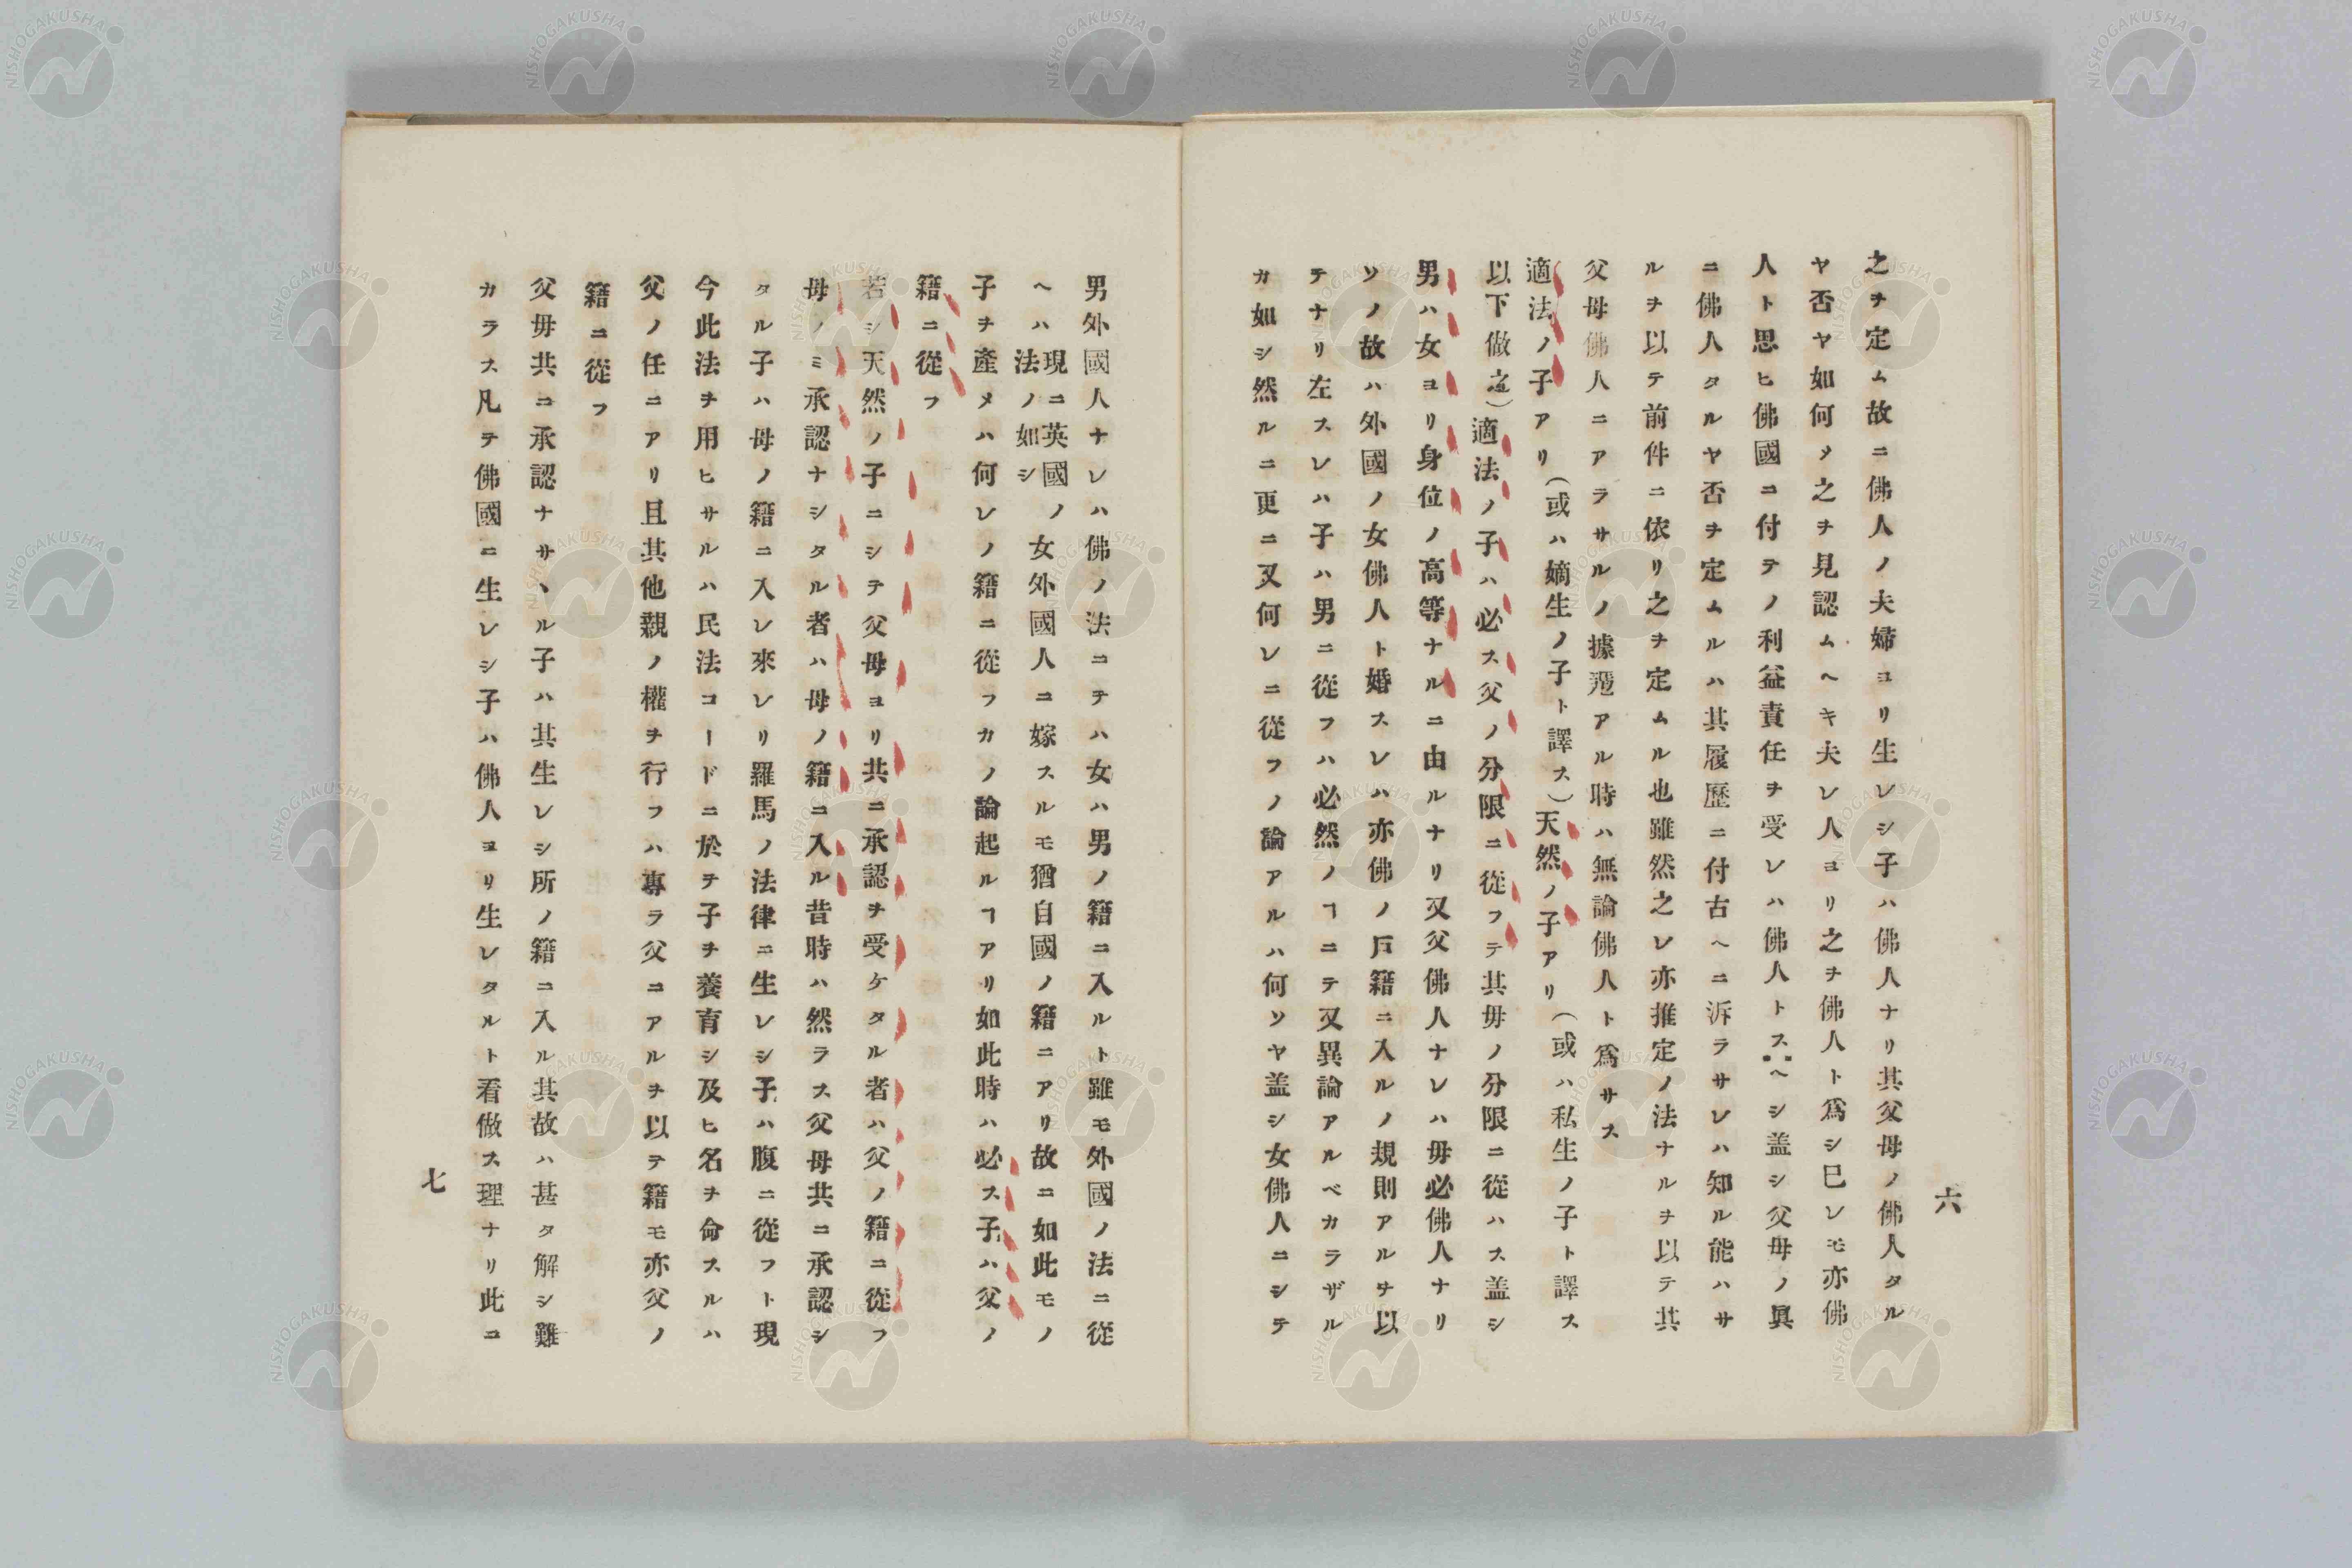 之ヲ定ム故ニ佛人ノ夫婦ヨリ生レシ子ハ佛人ナリ其父母ノ佛人タル
ヤ否ヤ如何メ之ヲ見認ムヘキ夫レ人ヨリ之ヲ佛人ト爲シ巳レモ亦佛
人ト思ヒ佛國ニ付テノ利益責任ヲ受レハ佛人トスヘシ盖シ父母ノ眞
ニ佛人タルヤ否ヲ定ムルハ其履歷ニ付古ヘニ泝ラサレハ知ル能ハサ
ルヲ以テ前件ニ依リ之ヲ定ムル也雖然之レ亦推定ノ法ナルヲ以テ其
父母佛人ニアラサルノ據アル時ハ無論佛人ト爲サス
適法ノ子アリ(或ハ嫡生ノ子ト譯ス)天然ノ子アリ(或ハ私生ノ子ト譯ス
以下倣之)適法ノ子ハ必ス父ノ分限ニ從フテ其毋ノ分限ニ從ハス盖シ
男ハ女ヨリ身位ノ高等ナルニ由ルナリ又父佛人ナレハ毋必佛人ナリ
ソノ故ハ外國ノ女佛人ト婚スレハ亦佛ノ戸籍ニ入ルノ規則アルヲ以
テナリ左スレハ子ハ男ニ從フハ必然ノヿニテ又異論アルベカラザル
カ如シ然ルニ更ニ又何レニ從フノ論アルハ何ソヤ盖シ女佛人ニシテ
六
男外國人ナレハ佛ノ法ニテハ女ハ男ノ籍ニ入ルト雖モ外國ノ法ニ從
ヘハ現ニ英國ノ法ノ如シ女外國人ニ嫁スルモ猶自國ノ籍ニアリ故ニ如此モノ
子ヲ產メハ何レノ籍ニ從フカノ論起ルヿアリ如此時ハ必ス子ハ父ノ
籍ニ從フ
若シ天然ノ子ニシテ父母ヨリ共ニ承認ヲ受ケタル者ハ父ノ籍ニ從フ
母ノミ承認ナシタル者ハ母ノ籍ニ入ル昔時ハ然ラス父母共ニ承認シ
タル子ハ母ノ籍ニ入レ來レリ羅馬ノ法律ニ生レシ子ハ腹ニ從フト現
今此法ヲ用ヒサルハ民法コードニ於テ子ヲ養育シ及ヒ名ヲ命スルハ
父ノ任ニアリ且其他親ノ權ヲ行フハ專ラ父ニアルヲ以テ籍モ亦父ノ
籍ニ從フ
父毋共ニ承認ナサヽル子ハ其生レシ所ノ籍ニ入ル其故ハ甚タ解シ難
カラス凡テ佛國ニ生レシ子ハ佛人ヨリ生レタルト看做ス理ナリ此ニ
七